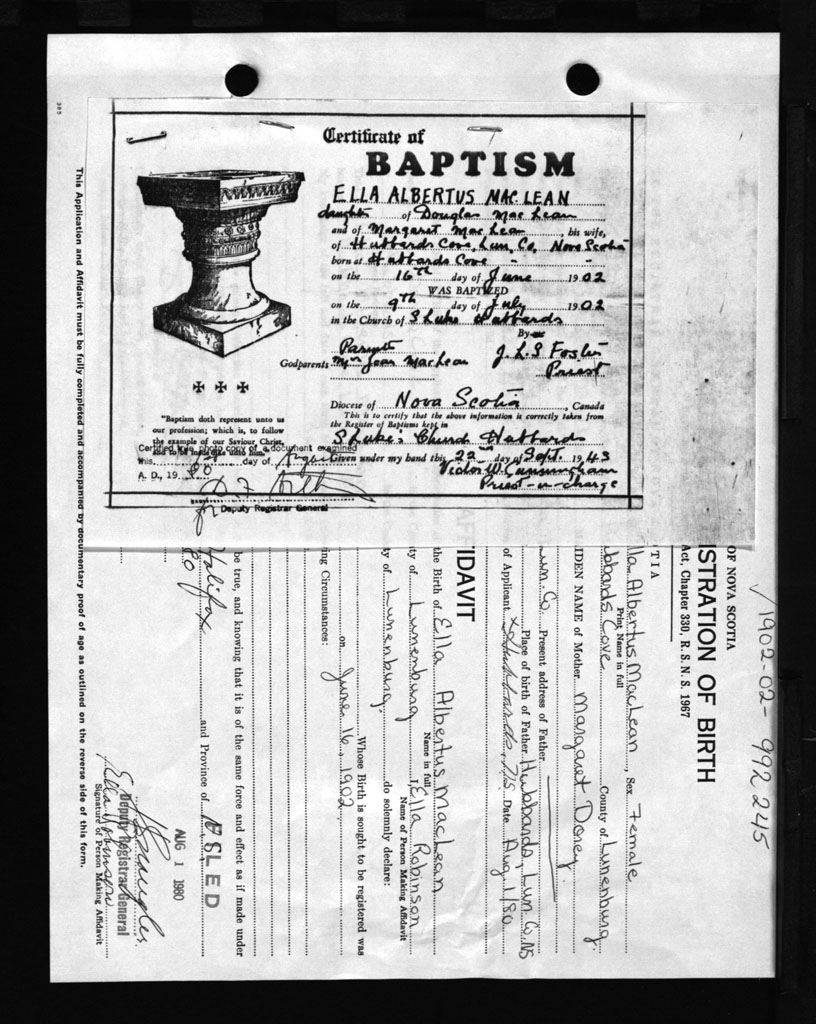 Certificate of
BAPTISM
ELLA ALBERTUS MAC LEAN
daughter of Douglas Mac Lean
and of Margaret Mac Lean, his wife,
of Hubbards Cove, Lun. Co, Nova Scotia
born at Hubbards Cove " "
on the 16th day of June 1902
WAS BAPTIZED
on the 9th day of July 1902
in the Church of S Luke Hubbards
By
Godparents Mrs Jean MacLean
J. L. S Foster
Priest
Diocese of Nova Scotia, Canada
This is to certify that the above information is correctly taken from
the Register of Baptisms kept in
S Lukes Church Hubbards
Given under my hand this 22nd day of Sept. 1943
Victor W. Cunningham
Priest-in-charge
"Baptism doth represent unto us
our profession; which is, to follow
the example of our Saviour Christ,
and to be made like unto him."
Certified true photo copy of a document examined
this day of August
A. D., 19 80
Deputy Registrar General
385
This Application and Affidavit must be fully completed and accompanied by documentary proof of age as outlined on the reverse side of this form.
√ 1902-02-992245
OF NOVA SCOTIA
ISTRATION OF BIRTH
Act, Chapter 330, R. S. N. S. 1967
TIA
lla Albertus MacLean, Sex Female
Print Name in full
ubbards Cove County of Lunenburg
IDEN NAME of Mother Margaret Dorey
un. Co. Present address of Father
Place of birth of Father Hubbards, Lun. Co. NS
of Applicant x Hubbards, NS Date Aug 1/80
IDAVIT
the Birth of Ella Albertus MacLean
Name in full
ty of Lunenburg I, Ella Robinson
Name of Person Making Affidavit
ty of Lunenburg. do solemnly declare:
Whose Birth is sought to be registered was
on June 16, 1902
ing Circumstances:
be true, and knowing that it is of the same force and effect as if made under
Halifax and Province of N S
80
LED
AUG 1 1980
Deputy Registrar General
Ella Robinson
Signature of Person Making Affidavit